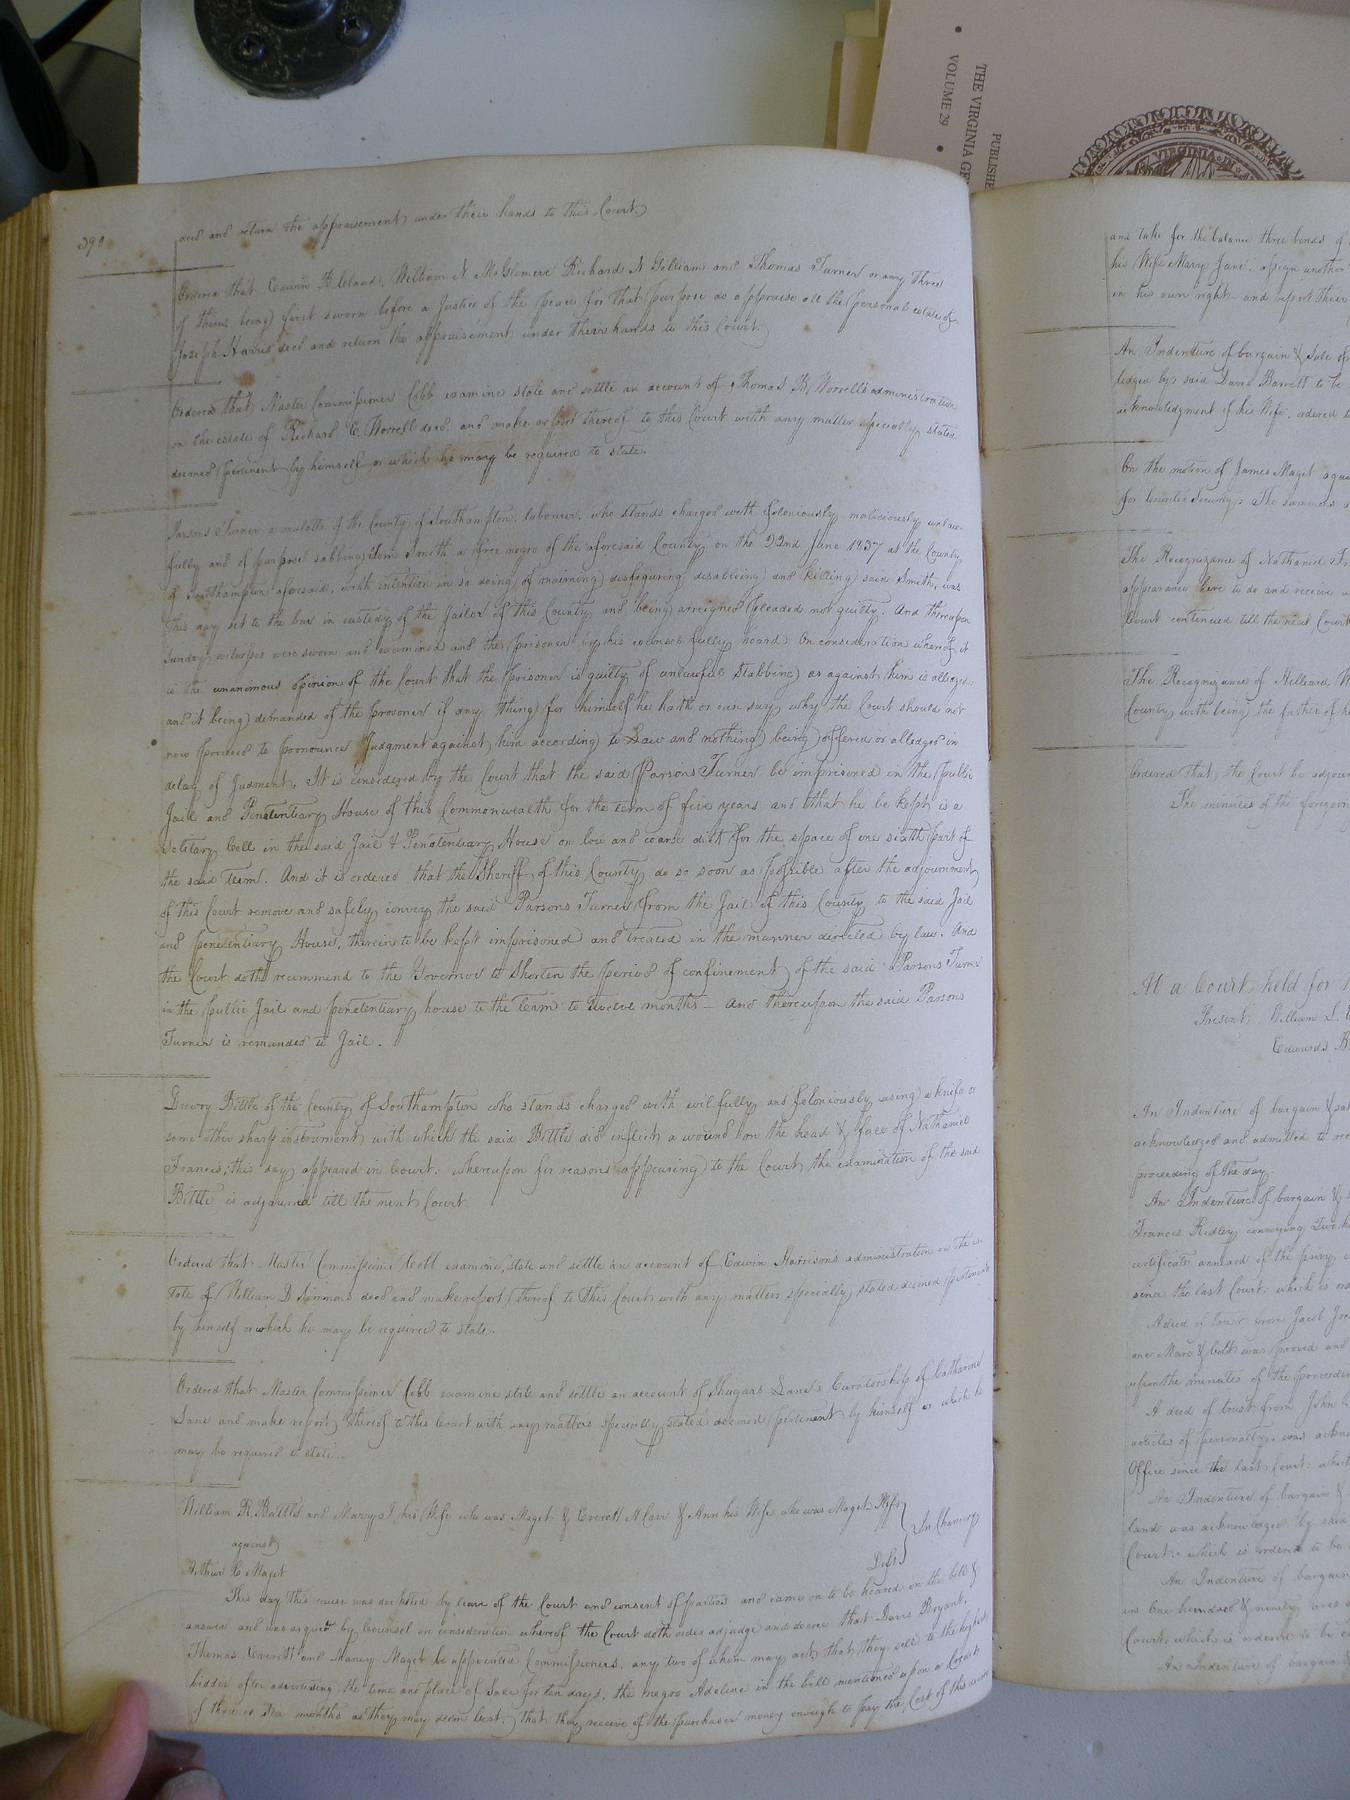 THE VIRGINIA GE
VOLUME 29
PUBLISHE
VIRGINIA IN
390
decd and return the appraisement under their hands to this Court
Ordered that Edwin B. Claud, William N McGlemere Richard N Gilliam and Thomas Turner or any three
of them being first sworn before a Justice of the peace for that purpose do appraise all the personal estate of
Joseph Harris decd and return the appraisement under their hands to this Court.
Ordered that Master Commissioner Cobb examine state and settle an account of Thomas B. Worrell's administration
on the estate of Richard E. Worrell decd and make report thereof to this Court with any matter specially stated
deemed pertinent by himself or which he may be required to state.
Parsons Turner a mulatto of the County of Southampton, labourer, who stands charged with feloniously maliciously unlaw-
fully and of purpose stabbing Smith a free negro of the aforesaid County on the 22nd June 1837 at the County
of Southampton aforesaid, with intention in so doing of maiming disfiguring disableing and killing said Smith, was
this day set to the bar in custody of the Jailor of this County and being arreigned pleaded not guilty. And thereupon
sundry witnesses were sworn and examined and the prisoner by his counsel fully heard: On consideration whereof it
is the unanimous opinion of the Court that the prisoner is guilty of unlawful Stabbing as against him is alledged
and it being demanded of the prisoner if any thing for himself he hath or can say why the Court should not
now proceed to pronounce Judgment against him according to Law and nothing being offered or alledged in
delay of Judgment, It is considered by the Court that the said Parsons Turner be imprisoned in the public
Jail and Penetentiary House of this Commonwealth for the term of five years and that he be kept in a
solitary Cell in the said Jail & Penetentiary House on low and coarse diet for the space of one sixth part of
the said term. And it is ordered that the Sheriff of this County do so soon as possible after the adjournment
of this Court remove and safely convey the said Parsons Turner from the Jail of this County to the said Jail
and penetentiary House, therein to be kept imprisoned and treated in the manner directed by law. And
the Court doth recommend to the Governor to Shorten the period of confinement of the said Parsons Turner
in the public Jail and penetentiary house to the term to twelve months - And thereupon the said Parsons
Turner is remanded to Jail.
Drewry Bittle of the County of Southampton who stands charged with wilfully and feloniously using a knife or
some other sharp instrument with which the said Bittle did inflict a wound on the head & face of Nathaniel
Francis, this day appeared in Court: whereupon for reasons appearing to the Court, the examination of the said
Bittle is adjourned till the next Court
Ordered that Master Commissioner Cobb examine, state and settle an account of Edwin Harrison's administration on the es-
tate of William D Simmons decd and make report thereof to this Court with any matters specially stated deemed pertinent
by himself or which he may be required to state.
Ordered that Master Commissioner Cobb examine state and settle an account of Shugars Lane's Curatorship of Catharine
Lane and make report thereof to this Court with any matters specially stated deemed pertinent by himself or which he
may be required to state.
William R. Battle and Mary J. his Wife who was Maget & Everett A Carr & Ann his Wife who was Maget Plfs
against In Chancery
Arthur C Maget Deft
This day this cause was docketed by leave of the Court and consent of parties and came on to be heard on the bill &
answer and was argued by Counsel on consideration whereof the Court doth order adjudge and decree that Davis Bryant,
Thomas Everett and Maget be appointed Commissioners, any two of whom may act, that they sell to the highest
bidder after advertising the time and place of Sale for ten days, the negro Adeline in the bill mentioned upon a Credit
of three or months as they may deem best; that they receive of the purchaser money enough to pay the Cost of this
and take for the balance three bonds of
his Wife Mary Jane, assign another
in his own right and report their
An Indenture of bargain & Sale
ledged by said David Barrett to be
acknowledgment of his Wife, ordered
On the motion of James Maget
for Counter Security: The summons
The Recognizance of Nathaniel
appearance here to do and receive
Court continued till the next Court
The Recognizance of Hilliard
County with being the father of
Ordered that, the Court be adjour
The minutes of the foregoin
At a Court held for
Present William
Edwards
An Indenture of bargain &
acknowledged and admitted to
proceeding of the day.
An Indenture of bargain &
Francis Ridley conveying Two
certificate annexed of the privy
since the last Court: which is
A deed of trust from Jacob
one Mare & Colt was proved and
upon the minutes of the proceedi
A deed of trust from John
articles of personalty, was ackn
Office since the last Court: which
An Indenture of bargain &
land was acknowledged by said
Court: which is ordered to be
An Indenture of bargain
One hundred & ninety acres
Court: which is ordered to be
An Indenture of bargain